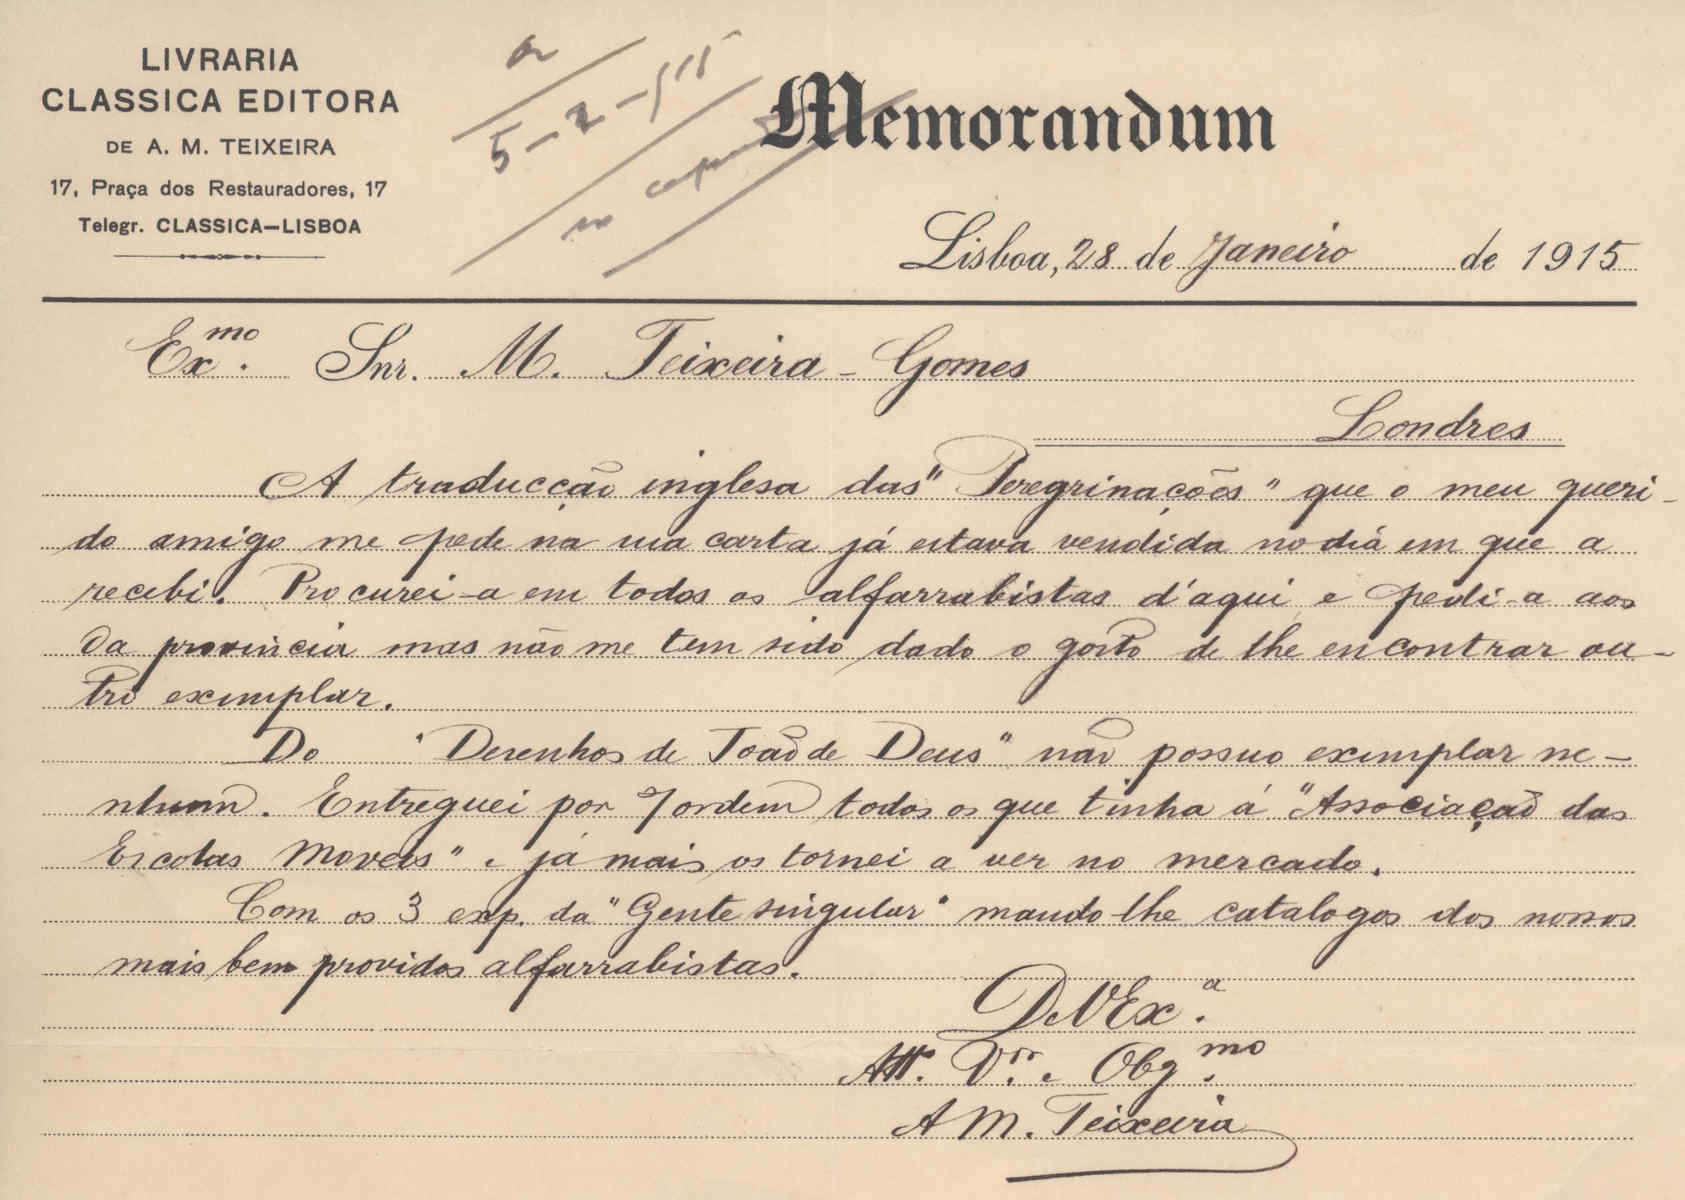 LIVRARIA
CLASSICA EDITORA
DE A. M. TEIXEIRA
17, Praça dos Restauradores, 17
Telegr. CLASSICA—LISBOA
5-2-915
Memorandum
Lisboa, 28 de Janeiro de 1915
Exmo. Snr. M. Teixeira-Gomes
Londres
A traducção inglesa das "Peregrinações" que o meu queri-
do amigo me pede na sua carta já estava vendida no dia em que a
recebi. Procurei-a em todos os alfarrabistas d'aqui e pedi-a aos
da provincia mas não me tem sido dado o gosto de lhe encontrar ou-
tro exemplar.
Do "Desenhos de João de Deus" não possuo exemplar ne-
nhum. Entreguei por ordem todos os que tinha á "Associação das
Escolas Moveis" e já mais os tornei a ver no mercado.
Com os 3 exp. da "Gente singular" mando-lhe catalogos dos nossos
mais bem providos alfarrabistas.
De V Exª.
Attº. Vor. e Obgmo.
A M. Teixeira